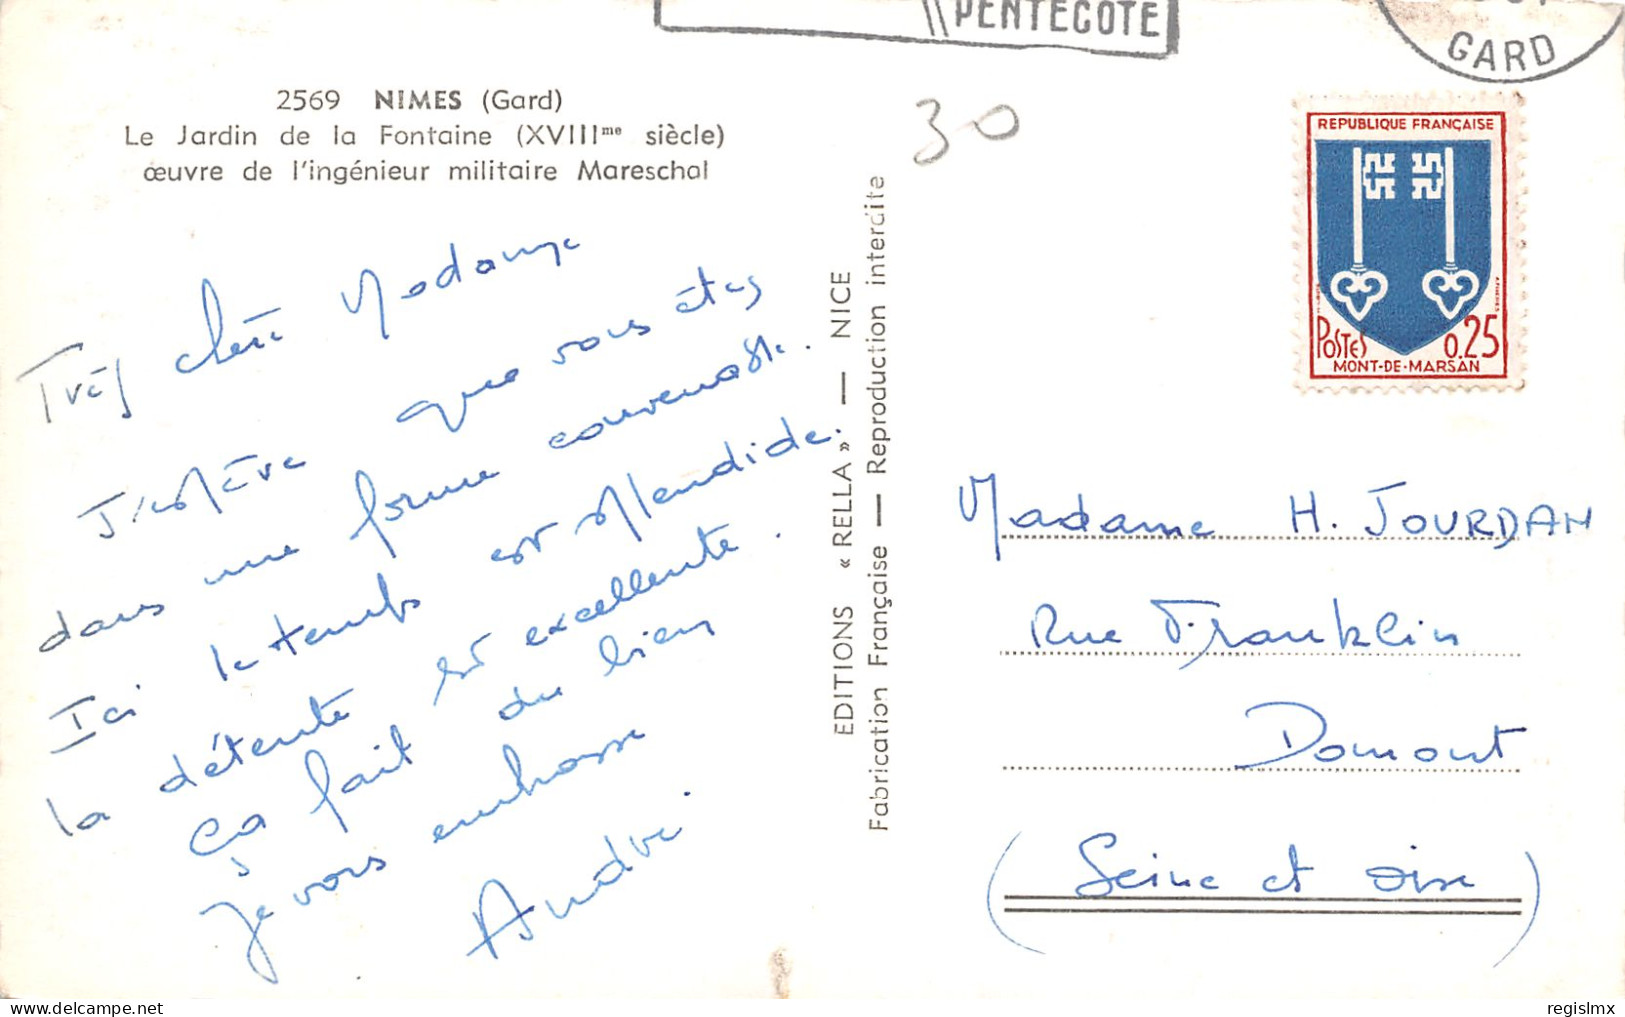 PENTECOTE
GARD
2569 NIMES (Gard)
Le Jardin de la Fontaine (XVIIIme siècle)
œuvre de l'ingénieur militaire Mareschal
30
REPUBLIQUE FRANÇAISE
POSTES 0.25
MONT-DE-MARSAN
Très chère Madame
J'espère que vous êtes
dans une forme convenable.
Ici le temps est splendide.
la détente est excellente.
ça fait du bien
Je vous embrasse
André
EDITIONS « RELLA » — NICE
Fabrication Française — Reproduction interdite
Madame H. JOURDAN
Rue Franklin
Domont
(Seine et Oise)
delcampe.net
regislmx